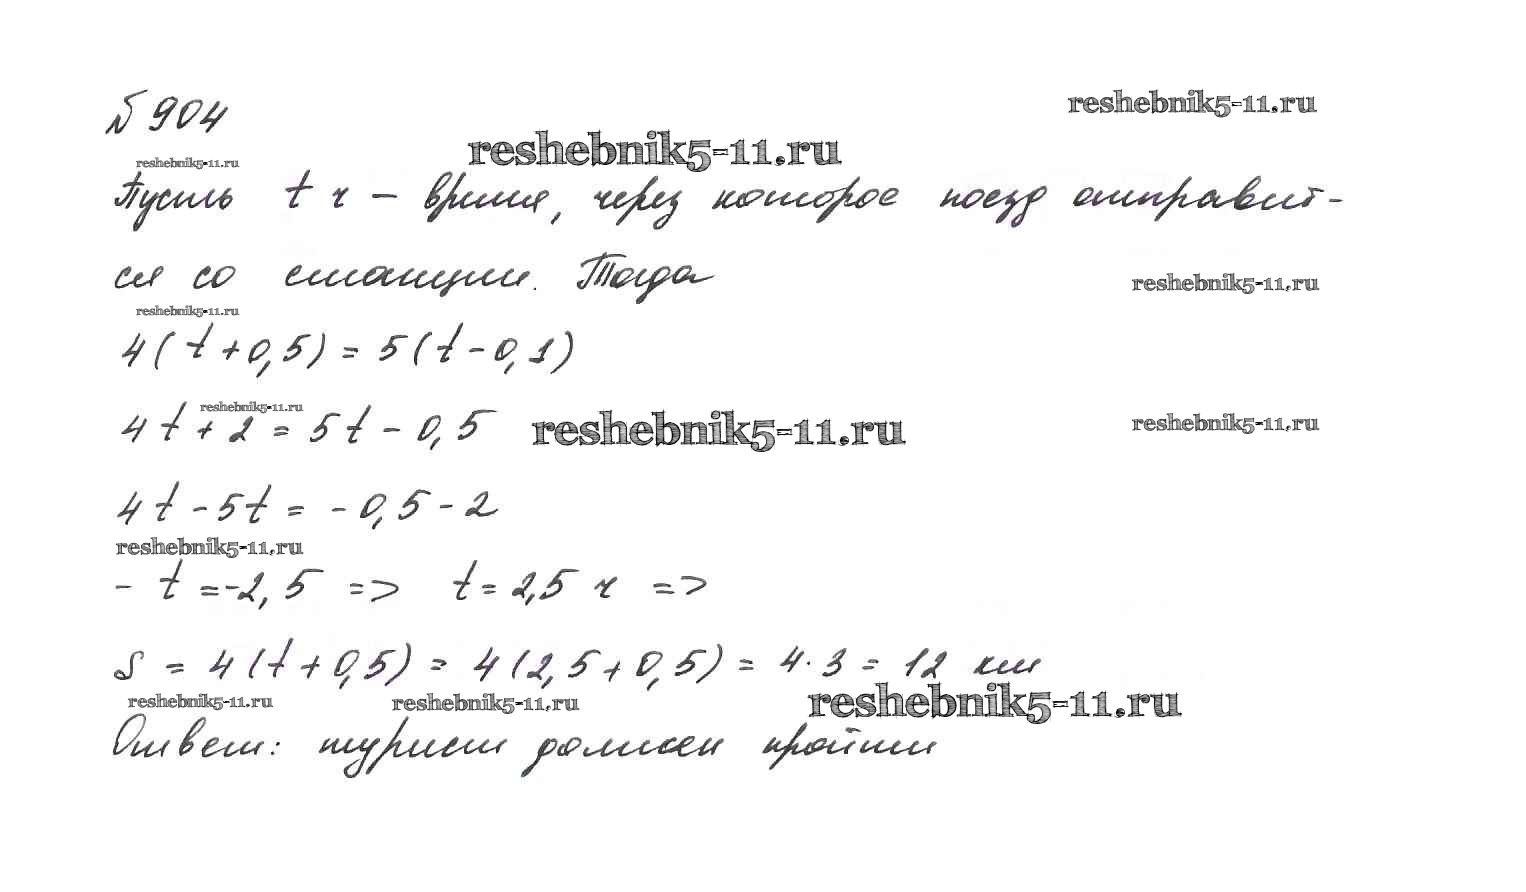 №904
reshebnik5-11.ru
reshebnik5-11.ru
reshebnik5-11.ru
Пусть t ч – время, через которое поезд отправит-
ся со станции. Тогда
reshebnik5-11.ru
reshebnik5-11.ru
4(t+0,5)=5(t-0,1)
reshebnik5-11.ru
4t+2=5t-0,5
reshebnik5-11.ru
reshebnik5-11.ru
4t-5t=-0,5-2
reshebnik5-11.ru
-t=-2,5 => t=2,5 ч =>
S=4(t+0,5)=4(2,5+0,5)=4·3=12 км
reshebnik5-11.ru
reshebnik5-11.ru
reshebnik5-11.ru
Ответ: турист должен пройти